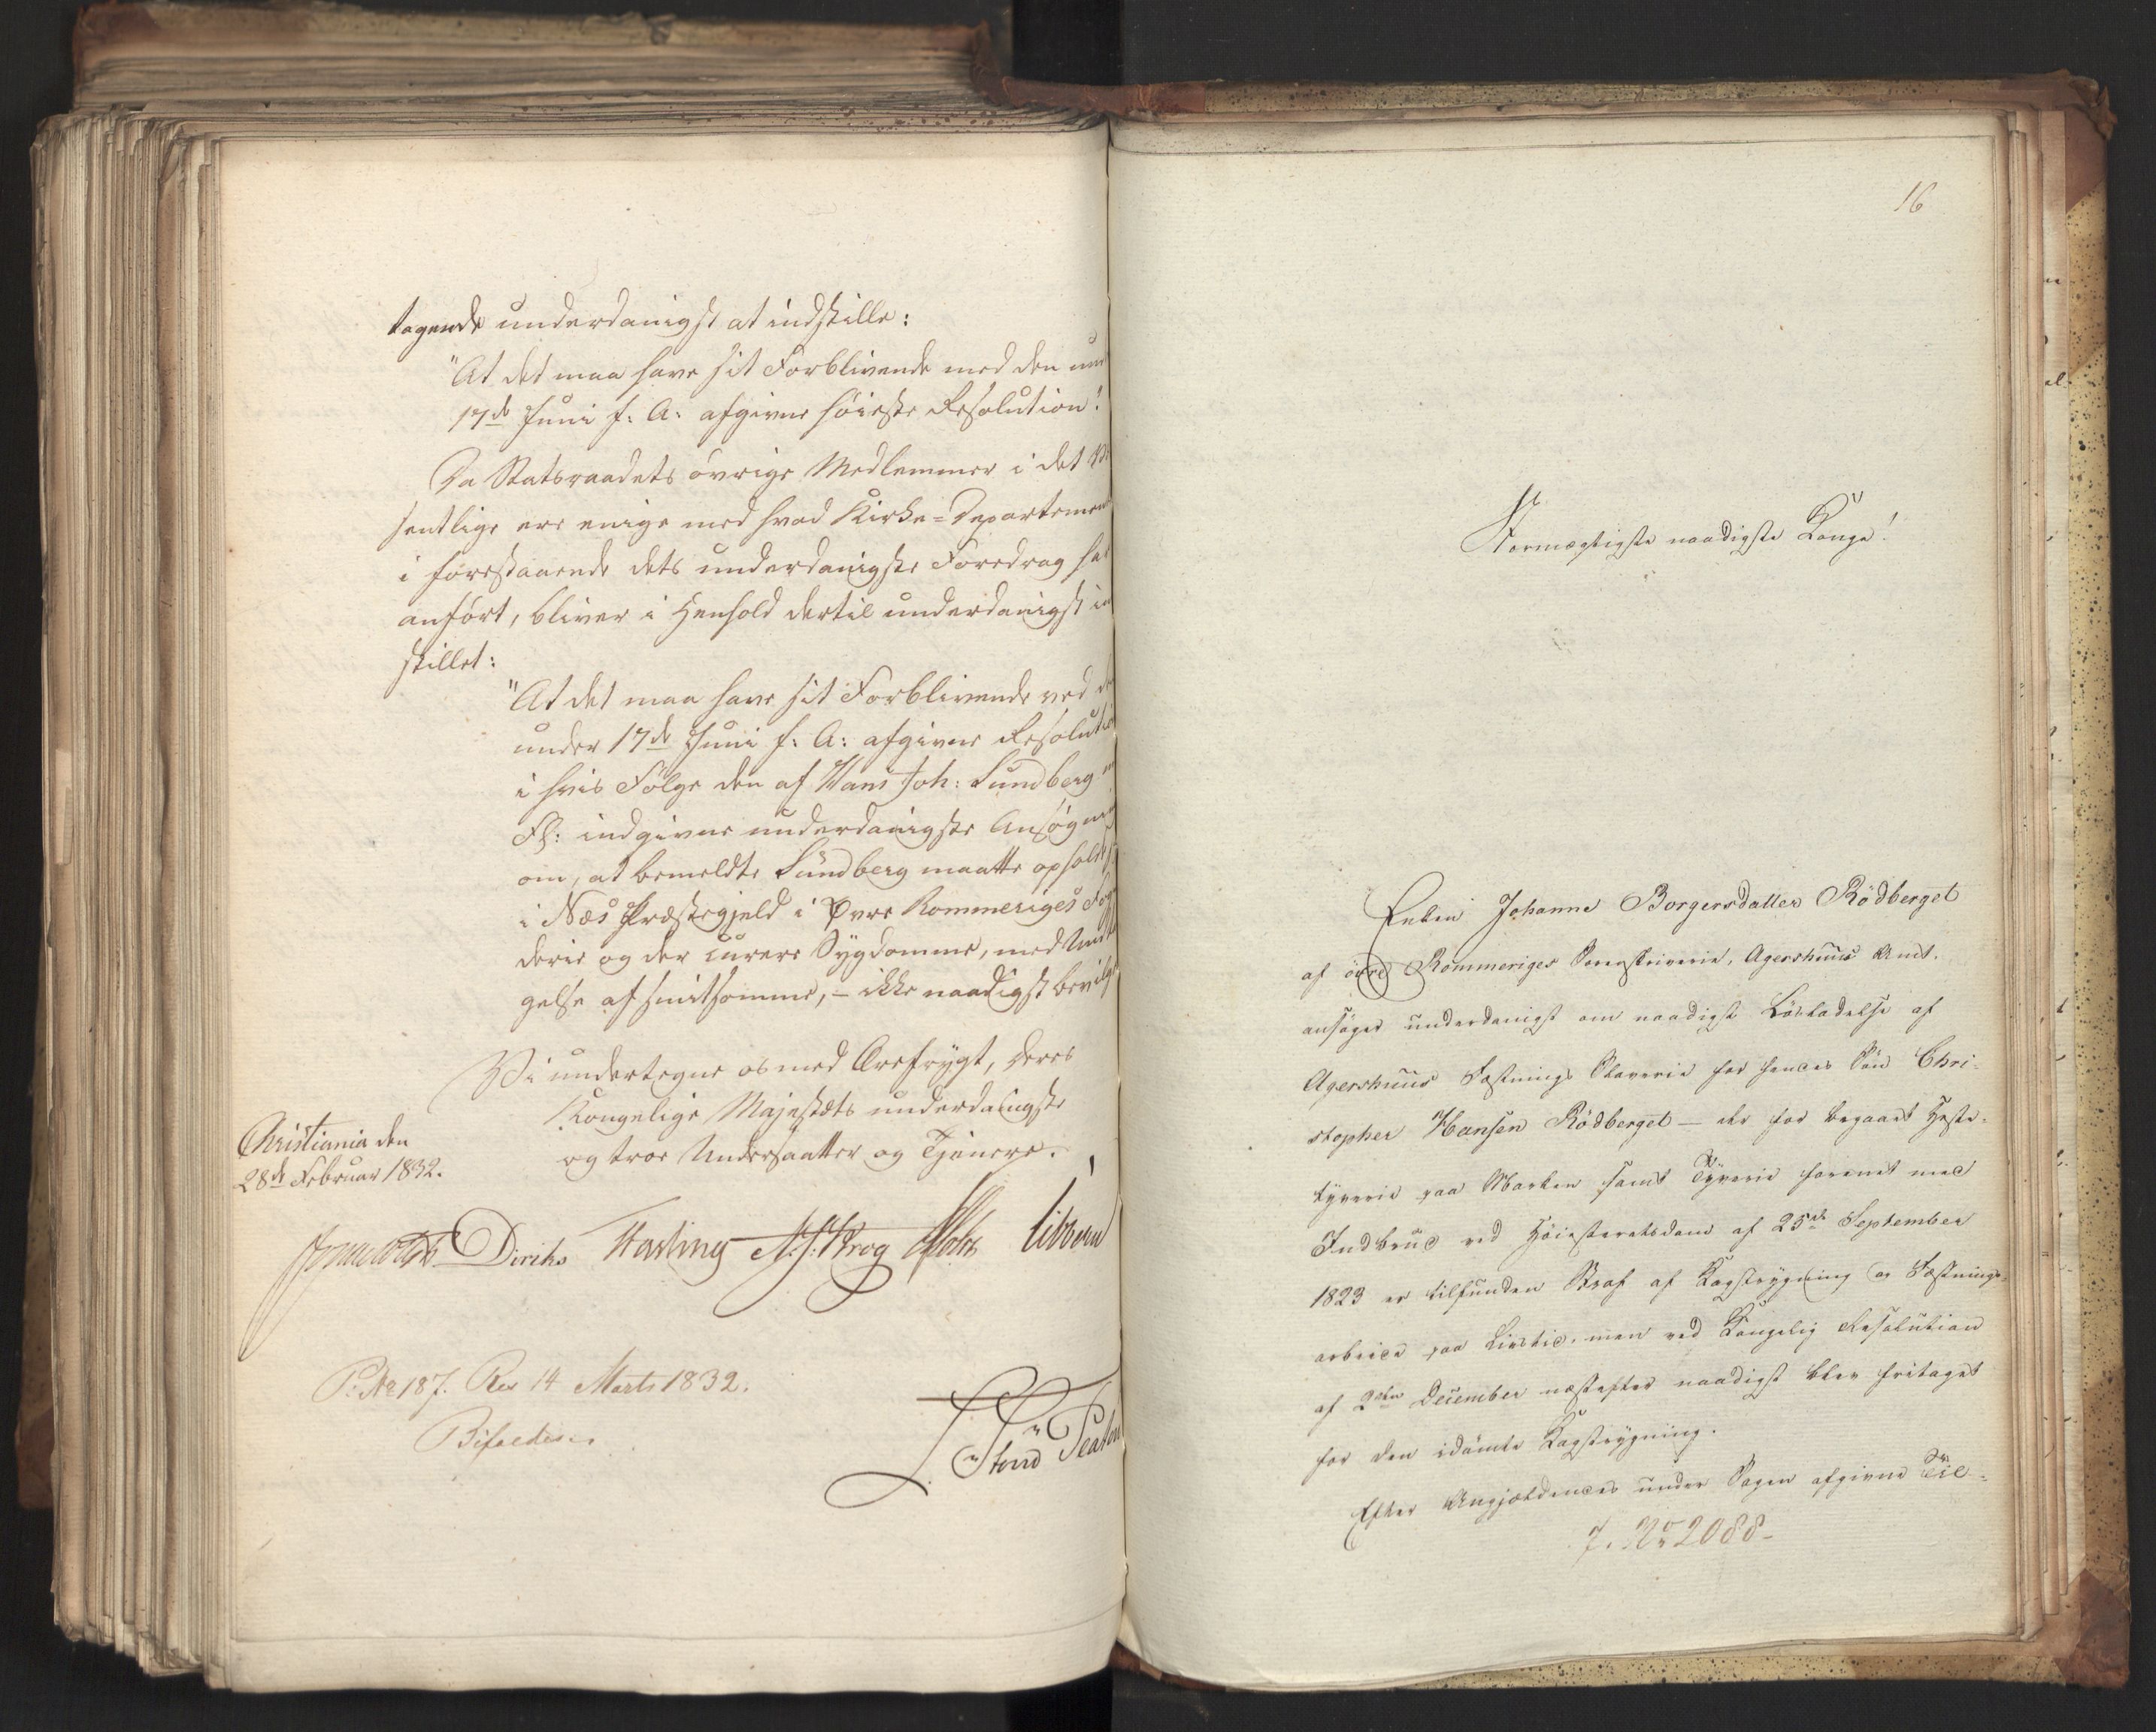 tagende underdanigst at indstille:
"At det maa have sit Forblivende med den un
17de Juni f: A: afgivne høieste Resolution".
Da Statsraadets øvrige Medlemmer i det V
sentlige ere enige med hvad Kirke-Departemen
i forestaaende dets underdanigste Foredrag ha
anført, bliver i Henhold dertil underdanigst in
stillet:
"At det maa have sit Forblivende ved d
under 17de Juni f: A: afgivne Resoluti
i hvis Følge den af Hans Joh: Sundberg m
Fl: indgivne underdanigste Ansøgn
om, at bemeldte Sundberg maatte ophold
i Næs Præstegjeld i Øvre Rommeriges Fog
derie og der curere Sygdomme, med Und
gelse af smitsomme, - ikke naadigst bevilg
Vi undertegne os med Ærefrygt, Deres
Kongelige Majestæts underdanigste
og troe Undersaatter og Tjenere.
Christiania den
28de Februar 1832.
Diriks N. J. Krog Holst Vibe
P: No 187. Res 14 Marts 1832.
Bifaldes.
16
Stormægtigste naadigste Konge!
Enken Johanne Borgersdatter Rödberget
af övre Rommeriges Sorenskriverie, Agershuus Amt,
ansöger underdanigst om naadigst Lösladelse af
Agershuus Fæstnings Slaverie for hendes Sön Chri-
stopher Hansen Rödberget - der for begaaet Heste-
tyverie paa Marken samt Tyverie forenet med
Indbrud ved Höiesteretsdom af 25de September
1823 er tilfunden Straf af Kagstrygning og Fæstnings-
arbeide paa Livstid, men ved Kongelig Resolution
af 2den December næstefter naadigst blev fritaget
for den idömte Kagstrygning.
Efter Angjeldendes under Sagen afgivne Til-
J. No 2088-